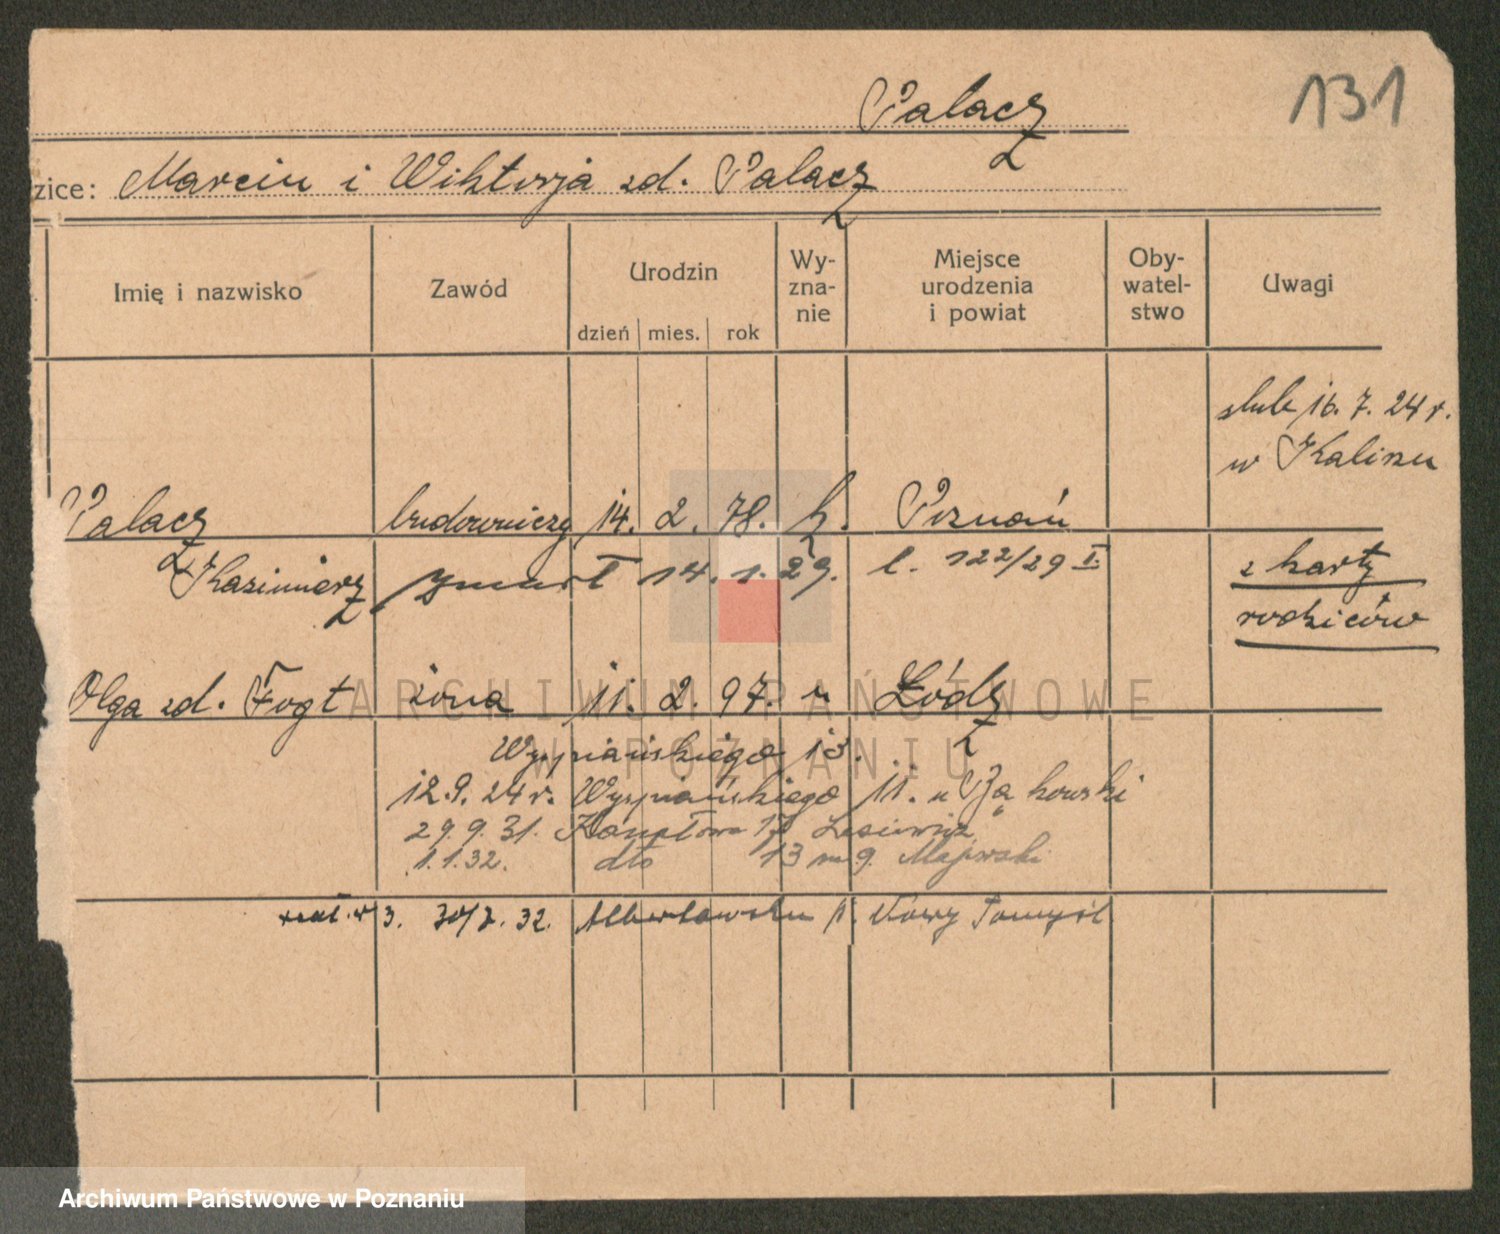 131
Palacz
zice: Marcin i Wiktorja zd. Palacz
Imię i nazwisko
Zawód
Urodzin
dzień mies. rok
Wy-
zna-
nie
Miejsce
urodzenia
i powiat
Oby-
watel-
stwo
Uwagi
ślub 16. 7. 24 r.
w Kaliszu
Palacz budowniczy 14. 2. 78. k. Poznań
Kazimierz zmarł 14. 1. 29. l. 122/29 I.
z karty
rodziców
Olga zd. Fogt żona 11. 2. 97. " Łódz
Wyspiańskiego 13.
12.9. 24 r. Wyspiańskiego 11. u Bąkowski
29.9.31. 17
1.1.32. dto 13 m 9. Majewski
3. 30/7. 32. Nowy Tomyśl
ARCHIWUM PAŃSTWOWE
W POZNANIU
Archiwum Państwowe w Poznaniu